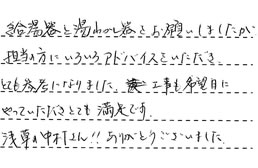 給湯器と湯わかし器をお願いしましたが
担当の方にいろいろアドバイスをいただき
とても参考になりました。工事も希望日に
やっていただきとても満足です。
浅草の中村さん!!ありがとうございました。